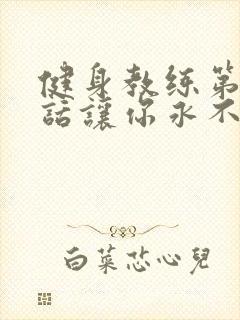 健身教练第
話讓你永不
白菜芯心兒